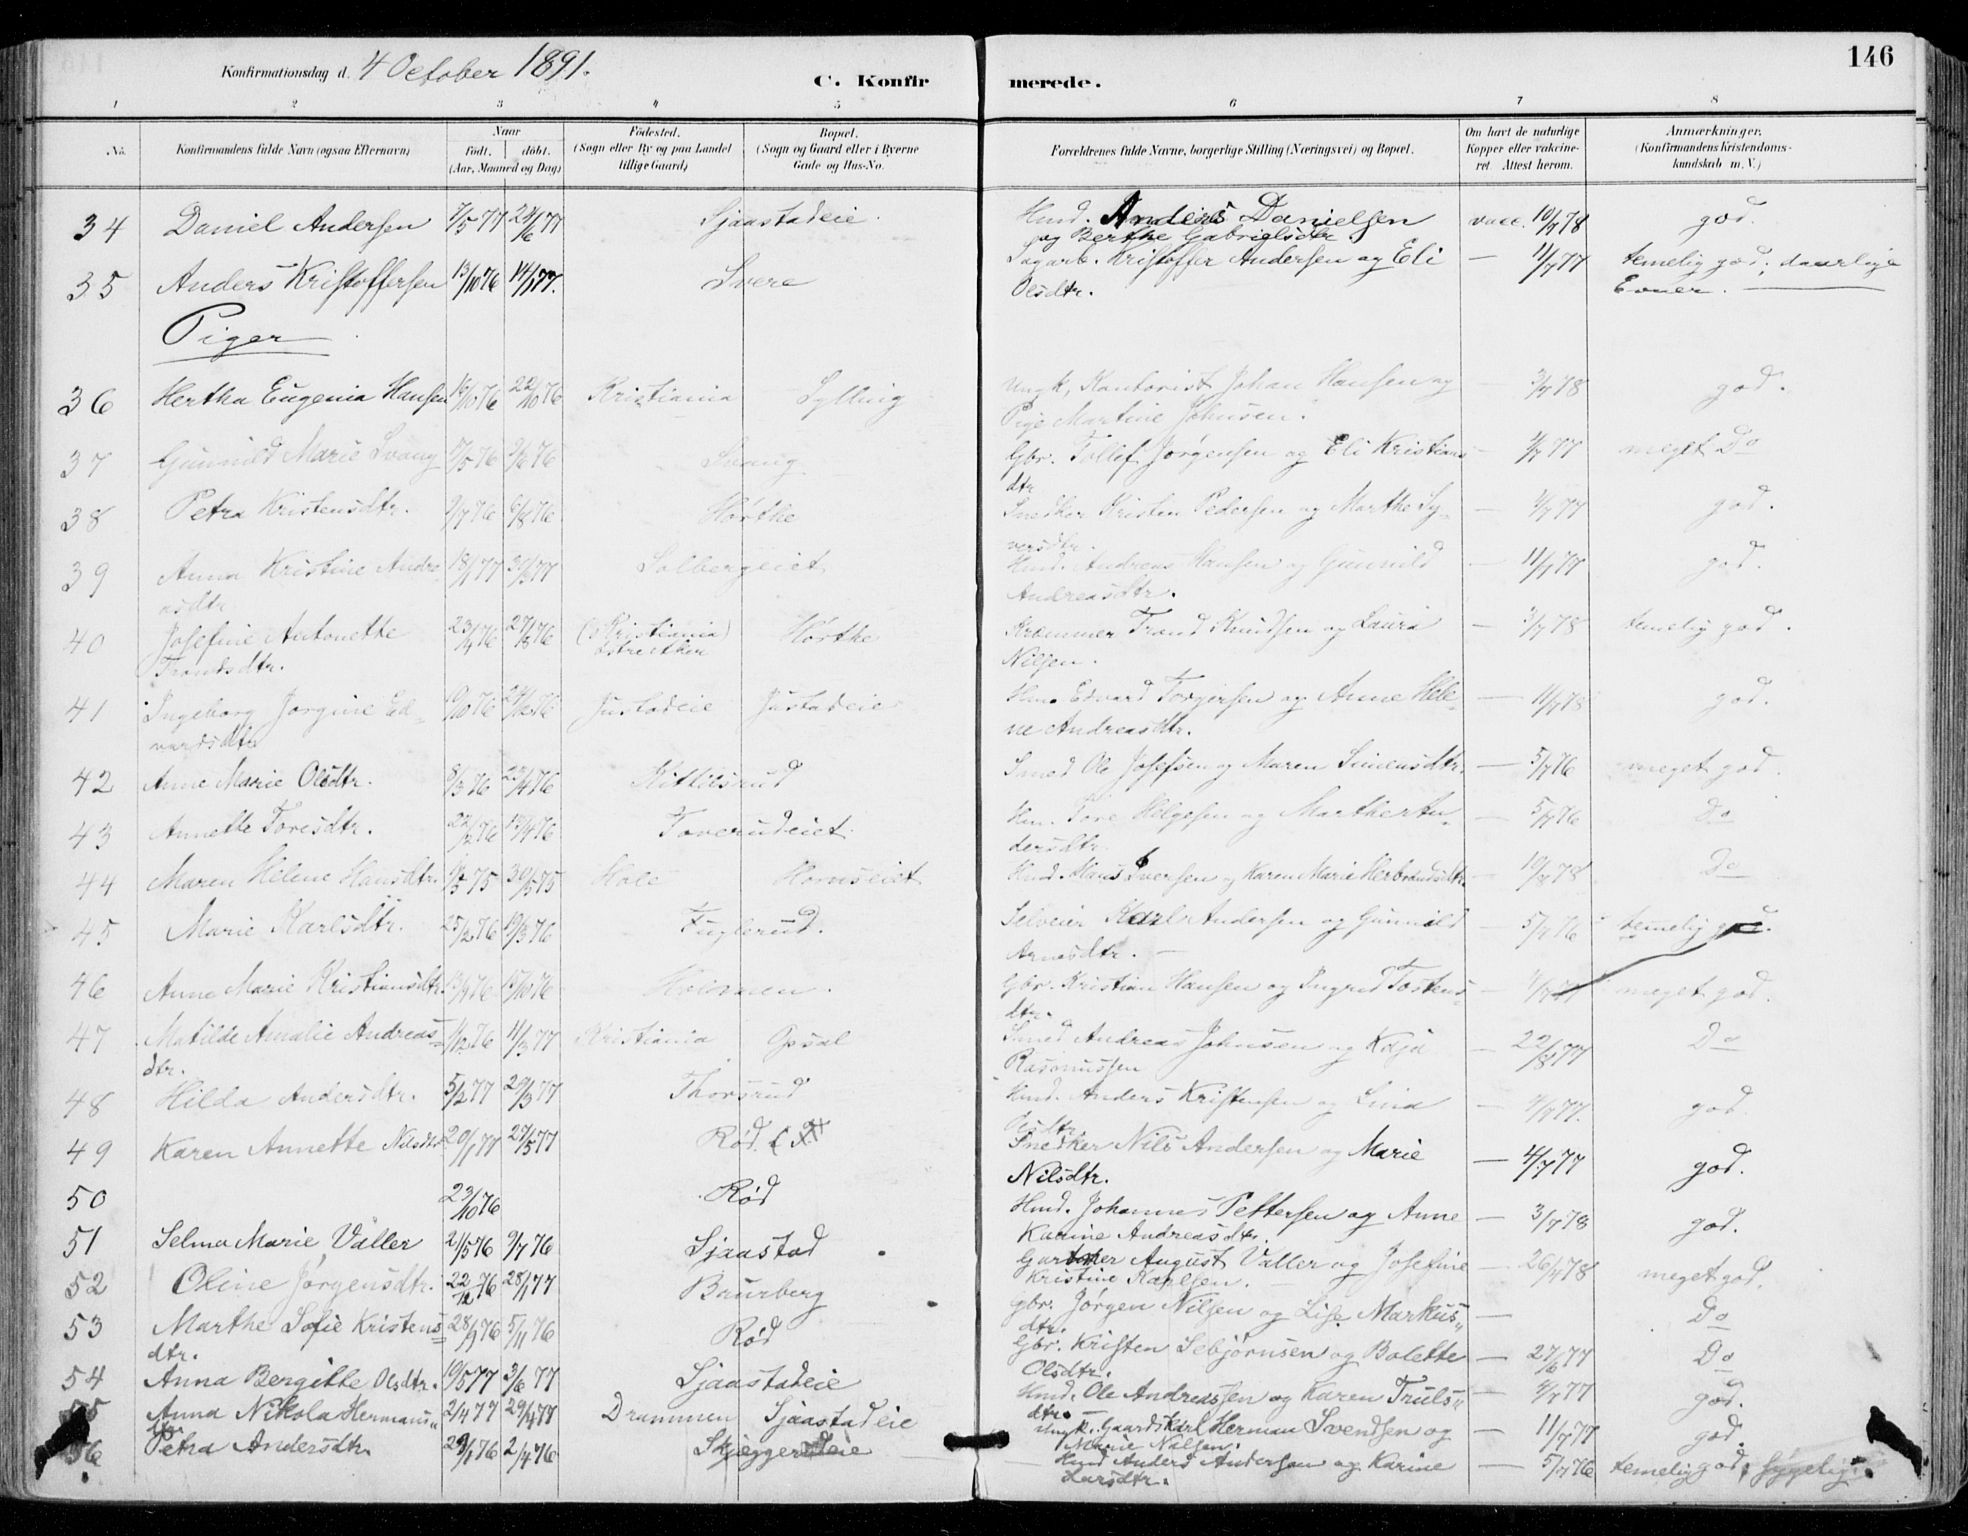 146
Konfirmationsdag d. 4 October 1891.
C. Konfirmerede.
1 2 3 4 5 6 7 8
No.
Konfirmandens fulde Navn (ogsaa Efternavn)
Naar
födt. döbt.
(Aar, Maaned og Dag)
Födested.
(Sogn eller By og paa Landet
tillige Gaard)
Bopæl.
(Sogn og Gaard eller i Byerne
Gade og Hus-No.
Forældrenes fulde Navne, borgerlige Stilling (Næringsvei) og Bopæl.
Om havt de naturlige
Kopper eller vakcine-
ret. Attest herom.
Anmærkninger.
(Konfirmandens Kristendoms-
kundskab m. V.)
34 Daniel Andersen 7/5 77 24/6 77 Sjaastadeie. Hmd. Anders Danielsen vacc. 10/7 78 god.
og Berthe Gabrielsdtr.
35 Anders Kristoffersen 13/10 76 14/1 77. Svere Sagarb. Kristoffer Andersen og Eli — 11/7 77 temelig god; daarlige
Olsdtr. Evner.
Piger
36 Hertha Eugenia Hansen 16/10 76 22/10 76 Kristiania Sylling Ungk. Kontorist Johan Hansen og — 3/7 78 god.
Pige Martine Johnsen.
37 Gunnild Marie Svang Svang Gbr. Tollef Jørgensen og Eli Kristians — 4/7 77 meget Do
dtr
38 Petra Kristensdtr. 9/7 76 6/8 76 Hørthe Snedker Kristen Pedersen og Marthe Sy- — 4/7 77 god.
versdtr.
39 Anna Kristine Andre- 18/1 77 Solbergeiet Hmd. Andreas Hansen og Gunnild — 11/7 77 god.
asdtr Andreasdtr.
40 Josefine Antonette 23/4 76 27/8 76 (Kristiania) Hørthe Kræmmer Trond Knudsen og Laura — 3/7 78 temelig god.
Trondsdtr. Nilsen.
41 Ingeborg Jørgine Ed- 10/10 76 Justadeie Justadeie Hmd. Edvard Torgersen og Anne Hele- — 11/7 78 god.
vardsdtr ne Andreasdtr.
42 Anne Marie Olsdtr. 8/3 76 23/4 76 Kittilsrud Smed Ole Josefsen og Maren Simensdtr. — 5/7 76 meget god.
43 Annette Toresdtr. 22/2 76 Toverudeiet Hm. Tore Helgesen og Marthe An- — 5/7 76 Do
dersdtr.
44 Maren Helene Hansdtr. 30/5 75 Hole Hornseiet Hmd. Hans Iversen og Karen Marie Herbrandsdtr. — 10/7 78 Do
45 Marie Karlsdtr. 25/2 76 19/3 76 Fuglerud. Selveier Karl Andersen og Gunnild — 5/7 76 temelig god.
Arnesdtr. —
46 Anne Marie Kristiansdtr. 13/9 76 15/10 76 Holmen. Gbr. Kristian Hansen og Ingrid Tostens- — meget god.
dtr.
47 Matilde Amalie Andreas- 1/12 76 11/3 77 Kristiania Opsal Smed Andreas Johnsen og Kaja — 22/8 77 Do
dtr. Rasmussen
48 Hilda Andersdtr. 5/2 77 29/3 77 Thorsrud Hmd. Anders Kristensen og Lina — 4/7 77. god
Olsdtr.
49 Karen Annette Nilsdtr 20/1 77 27/5 77 Rød. Snedker Nils Andersen og Marie — 4/7 77 god.
Nilsdtr.
50 23/10 76 Rød Hmd. Johannes Pettersen og Anne — 3/7 78 god.
Karine Andreasdtr.
51 Selma Marie Valler 21/5 76 9/7 76 Sjaastad Gartner August Valler og Josefine — 26/4 78 meget god.
Kristine Karlsen.
52 Oline Jørgensdtr. 22/12 76 28/1 77 Baurberg gbr. Jørgen Nilsen og Lise Markus- — Do
dtr.
53 Marthe Sofie Kristens- 28/9 76 5/11 76 Rød Gbr. Kristen Sebjørnsen og Bolette — 27/6 77 Do
dtr. Olsdtr.
54 Anna Bergitte Olsdtr. 10/5 77 3/6 77 Sjaastadeie Hmd. Ole Andreassen og Karen Truls- — 4/7 77 god.
dtr.
55 Anna Nikola Hermans- 2/4 77 29/4 77 Drammen Sjaastadeie Ungk. Gaardskarl Herman Svendsen og — 11/7 77 god.
dtr. Marie Nilsen.
56 Petra Andersdtr. 29/1 76 2/4 76 Skjeggerudeie Hmd Anders Andersen og Karine — 5/7 76 temelig god, sygelig.
Larsdtr.